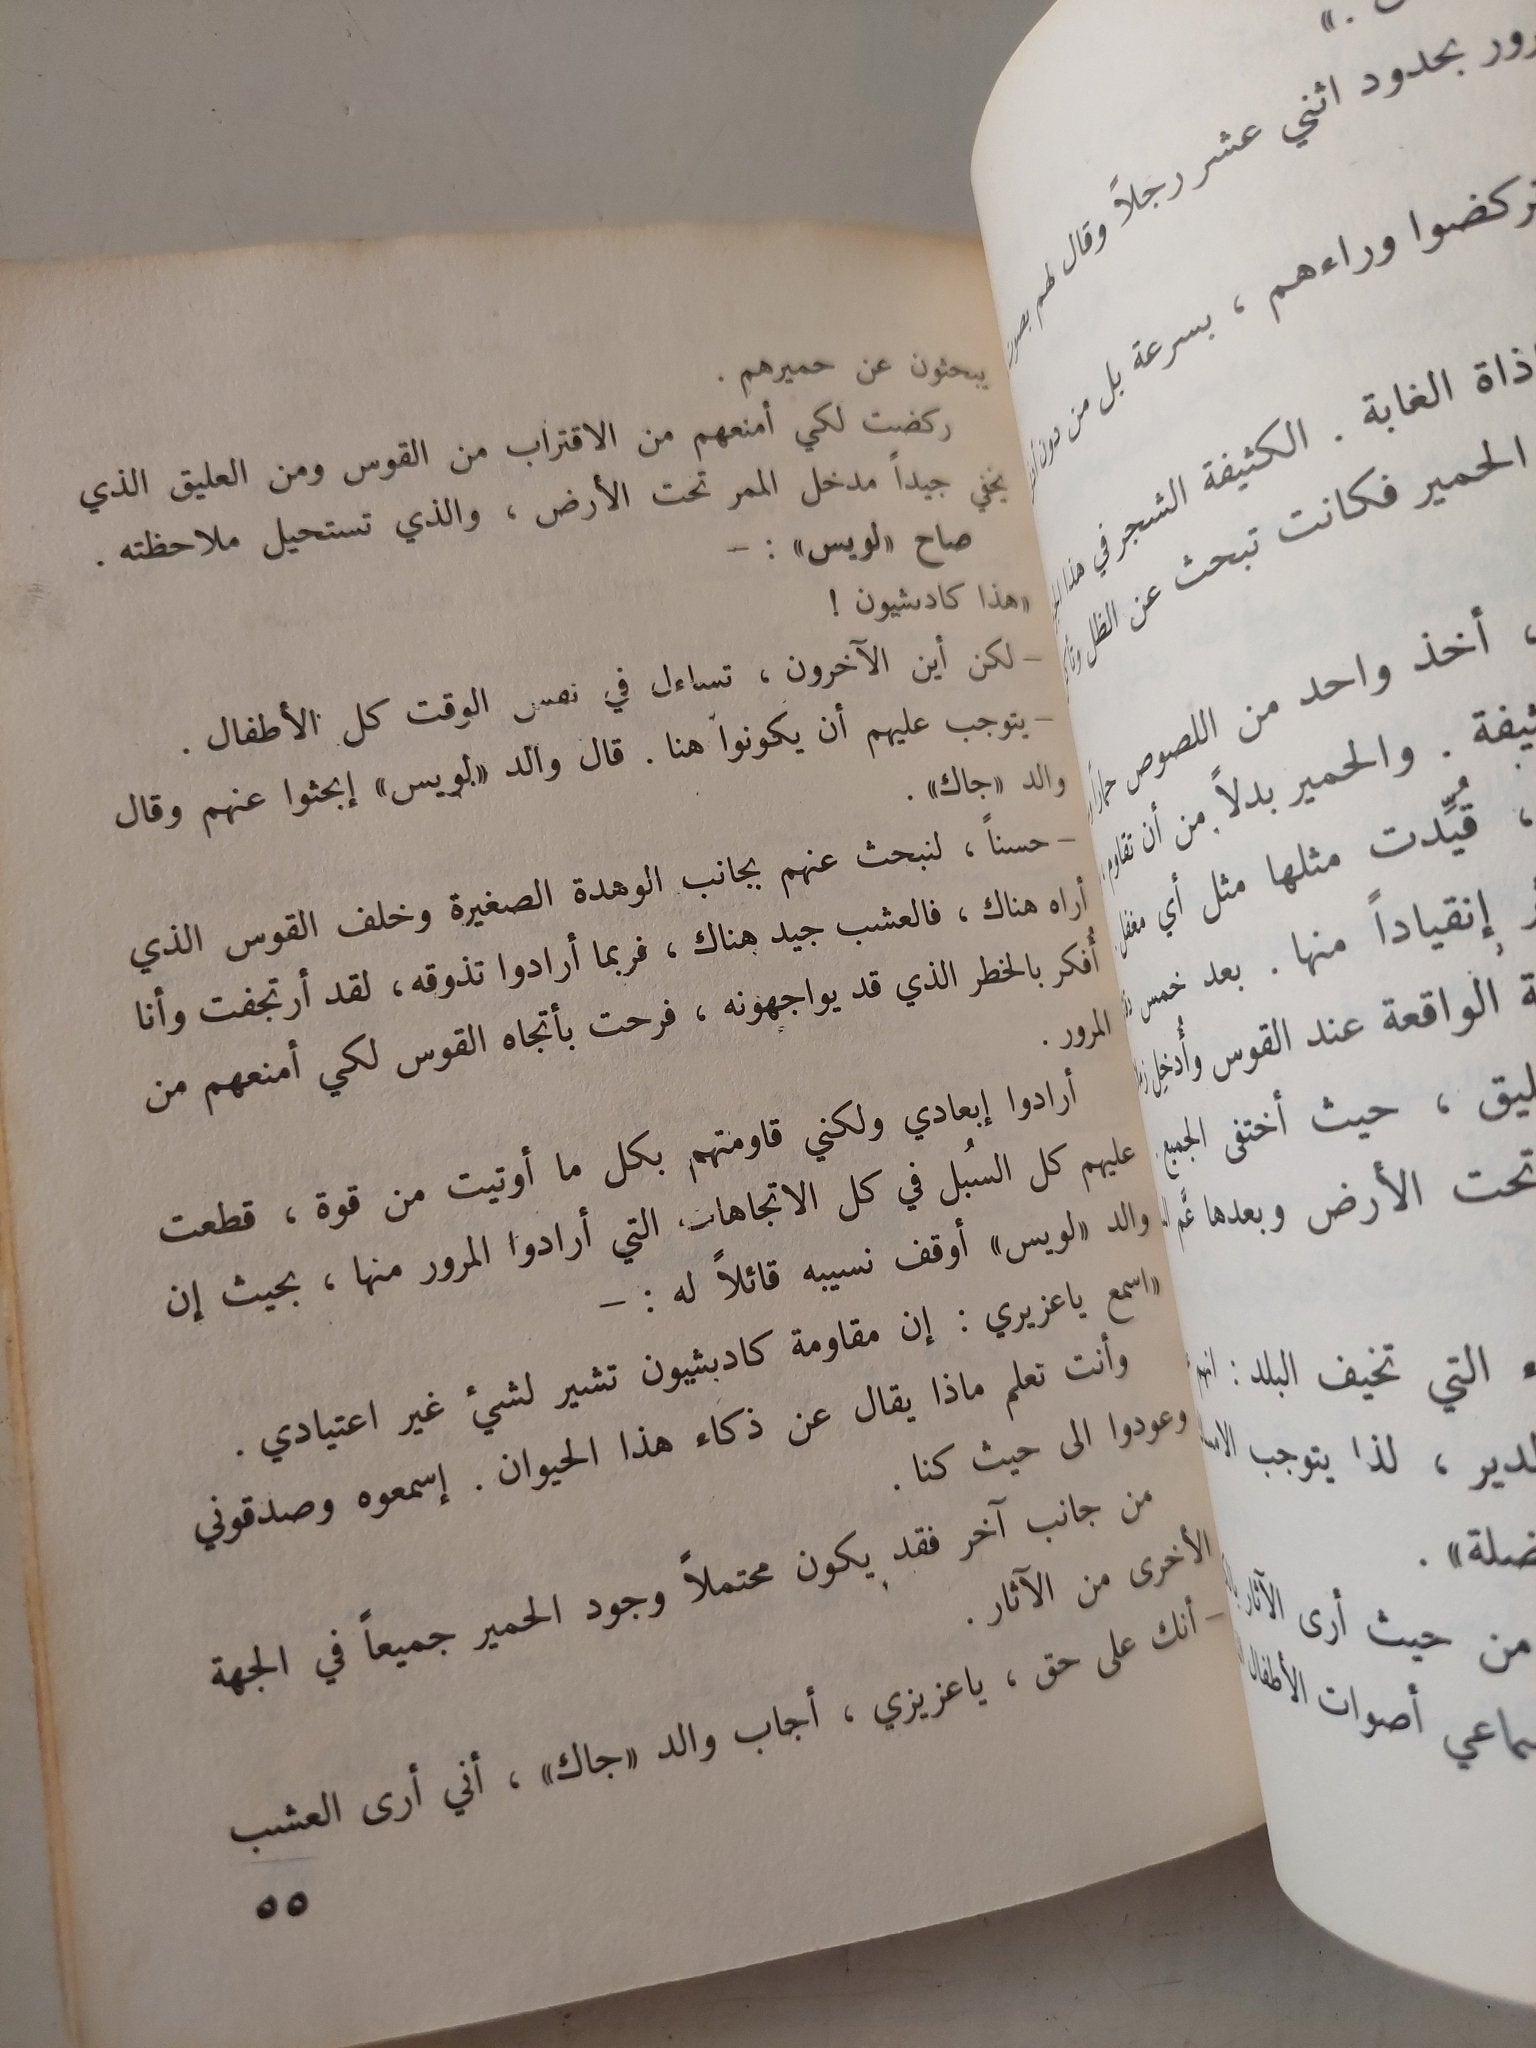 ن .»
رور بحدود اثني عشر رجلاً وقال لهم بصوت
تركضوا وراءهم ، بسرعة بل من دون أن
اذاة الغابة . الكثيفة الشجر في هذا
الحمير فكانت تبحث عن الظل
، أخذ واحد من اللصوص حماراً
ثيفة . والحمير بدلاً من أن تقاوم
، قُيِّدت مثلها مثل أي مغفل
ر إنقياداً منها . بعد خمس
ة الواقعة عند القوس وأُدخل
ليق ، حيث أختفى الجميع
تحت الأرض وبعدها عَّم
ء التي تخيف البلد : انهم
لدير ، لذا يتوجب
ضلة» .
من حيث أرى الآثار
سماعي أصوات الأطفال
يبحثون عن حميرهم .
ركضت لكي أمنعهم من الاقتراب من القوس ومن العليق الذي
يخفي جيداً مدخل الممر تحت الأرض ، والذي تستحيل ملاحظته .
صاح «لويس» : –
«هذا كادشيون !
– لكن أين الآخرون ، تساءل في نفس الوقت كل الأطفال .
– يتوجب عليهم أن يكونوا هنا . قال والد «لويس» إبحثوا عنهم وقال
والد «جاك» .
– حسناً ، لنبحث عنهم بجانب الوهدة الصغيرة وخلف القوس الذي
أراه هناك ، فالعشب جيد هناك ، فربما أرادوا تذوقه ، لقد أرتجفت وأنا
أُفكر بالخطر الذي قد يواجهونه ، فرحت بأتجاه القوس لكي أمنعهم من
المرور .
أرادوا إبعادي ولكني قاومتهم بكل ما أوتيت من قوة ، قطعت
عليهم كل السبُل في كل الاتجاهات التي أرادوا المرور منها ، بحيث إن
والد «لويس» أوقف نسيبه قائلاً له : –
«اسمع ياعزيري : إن مقاومة كادبشيون تشير لشيءٌ غير اعتيادي .
وأنت تعلم ماذا يقال عن ذكاء هذا الحيوان . إسمعوه وصدقوني
وعودوا الى حيث كنا .
من جانب آخر فقد يكون محتملاً وجود الحمير جميعاً في الجهة
الأخرى من الآثار .
– أنك على حق ، ياعزيزي ، أجاب والد «جاك» ، أني أرى العشب
٥٥